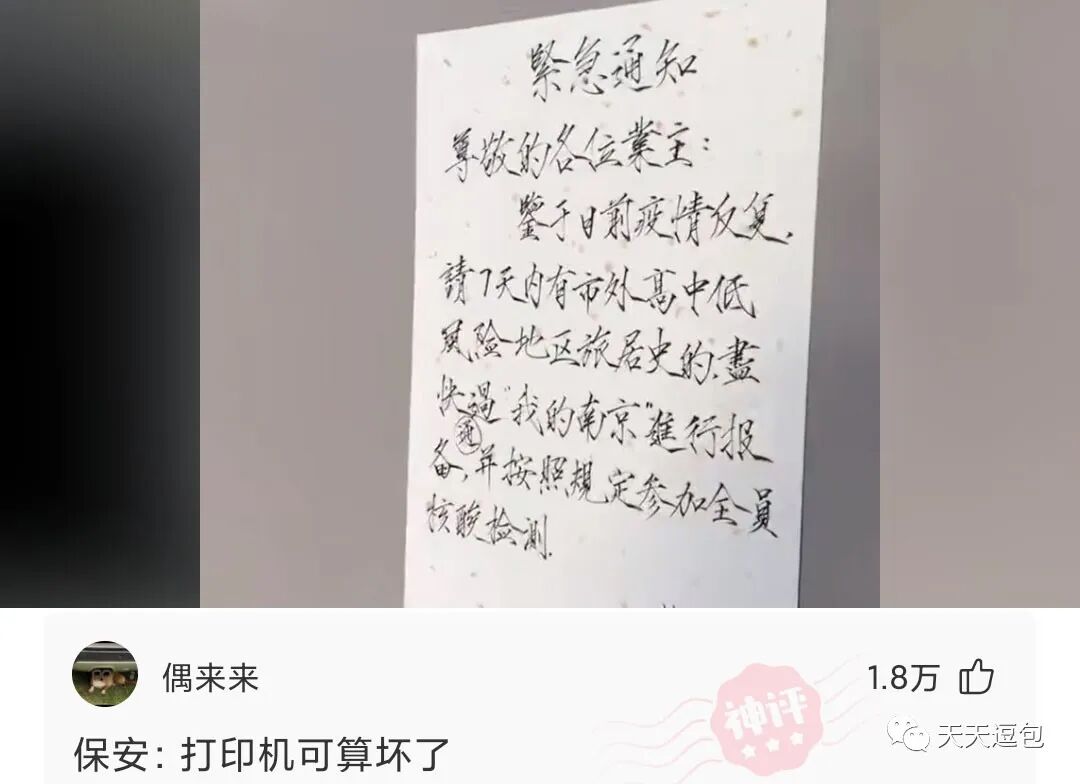 緊急通知
尊敬的各位業主:
鑒于日前疫情反复,
請7天内有市外高中低
风险地区旅居史的,盡
快過“我的南京”進行报
通
备,并按照規定参加全員
核酸检测.
偶来来
1.8万
神评
保安: 打印机可算坏了
天天逗包